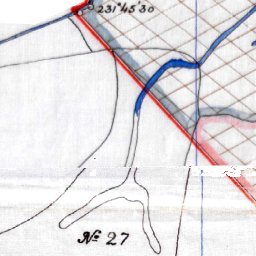 231°45'30
№ 27